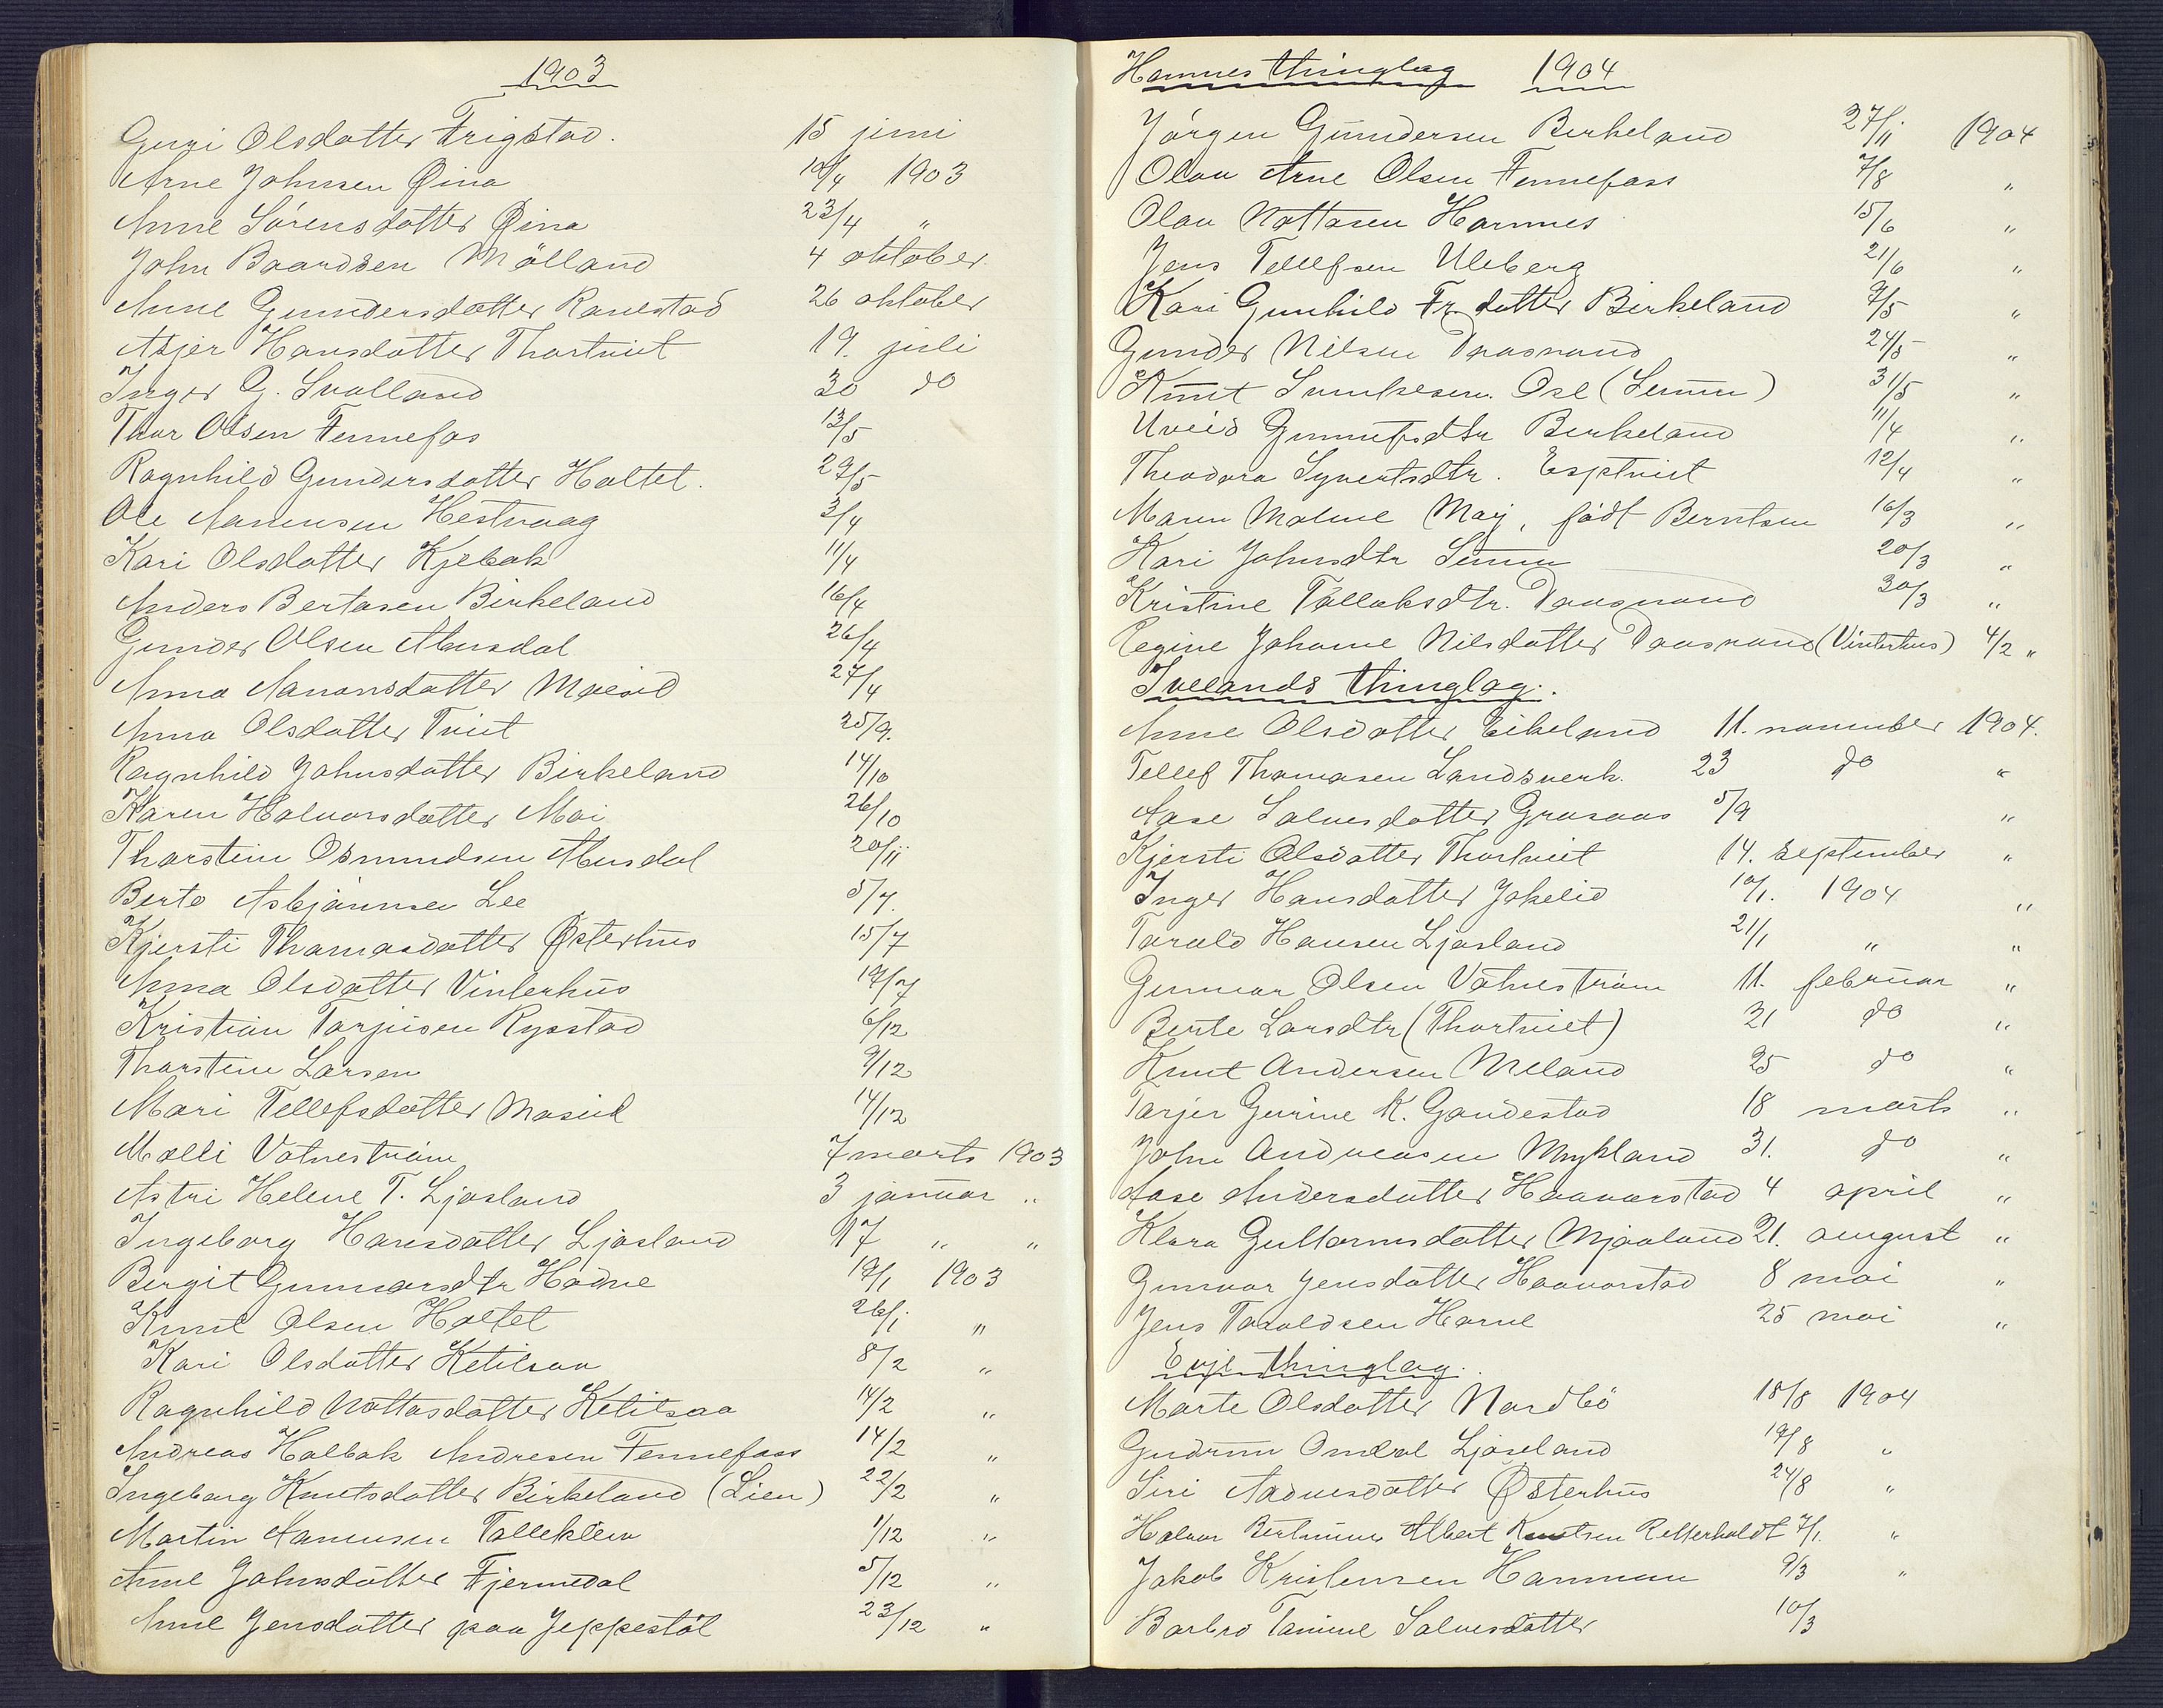 1903
Guri Olsdatter Frigstad. 15 juni
Arne Johnsen Øina 10/4 1903
Anne Sörensdatter Øina 23/4 "
John Baardsen Mölland 4 oktober
Anne Gundersdatter Ranestad 26 oktober
Asjer Hansdatter Thortveit 19. juli
Inger G. Svalland 30 do
Thor Olsen Fennefos 13/5
Ragnhild Gundersdatter Holtet. 29/5
Ole Aanensen Hestvaag 3/4
Kari Olsdatter Kjebak 11/4
Anders Bertasen Birkeland 16/4
Gunder Olsen Abusdal 26/4
Anna Aanonsdatter 27/4
Anna Olsdatter Tveit 25/9.
Ragnhild Johnsdatter Birkeland 14/10
Karen Halvorsdatter Moi 26/10
Thorstein Osmundsen Abusdal 20/11
Berte Asbjörnsen Lee 5/7.
Kjersti Thomasdatter Østerhus 15/7
Anna Olsdatter Vinterhus 19/7
Kristian Tarjusen Rysstad 6/12
Thorstein Larsen 9/12
Mari Tellefsdatter 14/12
Malli Vatneström 7 marts 1903
Astri Helene T. Ljosland 3 januar "
Ingeborg Hansdatter Ljosland 17 " "
Bergit Gunnarsdtr Hodne 19/1 1903
Knut Olsen Holtet 26/1 "
Kari Olsdatter Ketilsaa 8/2 "
Ragnhild Nottosdatter Ketilsaa 14/2 "
Andreas Holbak Andresen Fennefoss 14/2 "
Ingeborg Knutsdatter Birkeland (Lien) 22/2 "
Martin Aanensen Tallekleiv 1/12 "
Anne Johnsdatter Fjermedal 5/12 "
Anne Jensdatter paa Jeppestöl 23/12 "
Hornnes thinglag 1904
Jörgen Gundersen Birkeland 27/11 1904
Olav Arne Olsen Fennefoss 7/8 "
Olav Nottosen Hornnes 15/6 "
Jens Tellefsen Uleberg 21/6 "
Kari Gunhild Fr. datter Birkeland 9/5 "
Gunder Nilsen Daasvand 24/5 "
Knut Sveinkesen. Ose (Senum) 31/5 "
Gunnufsdtr Birkeland 11/4 "
Theodora Syvertsdtr. Esptveit 12/4 "
Maren Malene Moy, födt Berntsen 16/3 "
Kari Johnsdtr Senum 20/3 "
Kristine Tallaksdtr. Daasvand 30/3 "
Regine Johanne Nilsdatter Daasvand (Vinterhus) 4/2 "
Ivelands thinglag.
Anne Olsdatter Eikeland 11. november 1904.
Tellef Thomasen Landsverk. 23 do "
Aase Salvesdatter Grosaas 5/9 "
Kjersti Olsdatter Thortveit 14. September "
Inger Hansdatter Jokelid 10/1. 1904 "
Torald Hansen Ljosland 21/1 " "
Gunnar Olsen Vatneström 11. februar "
Berte Larsdtr (Thortveit) 21 do "
Knut Andersen Meland 25 do "
Tarjer Gurine K. Gaudestad 18 marts "
John Andreasen Mykland 31. do "
Aase Andersdatter Haavorstad 4 april "
Klara Guttormsdatter Mjaaland 21. august "
Gunvor Jensdatter Haavorstad 8 mai "
Jens Toraldsen Horne 25 mai "
Evje thinglag.
Marte Olsdatter Nordbö 18/8 1904
Gudrun Omdal Ljoseland 19/8 "
Siri Aadnesdatter Østerhus 24/8 "
Halvor Albert Knutsen Retterholdt 7/1. "
Jakob Kristensen Hamman 9/3 "
Barbro Tamine Salvesdatter 10/3